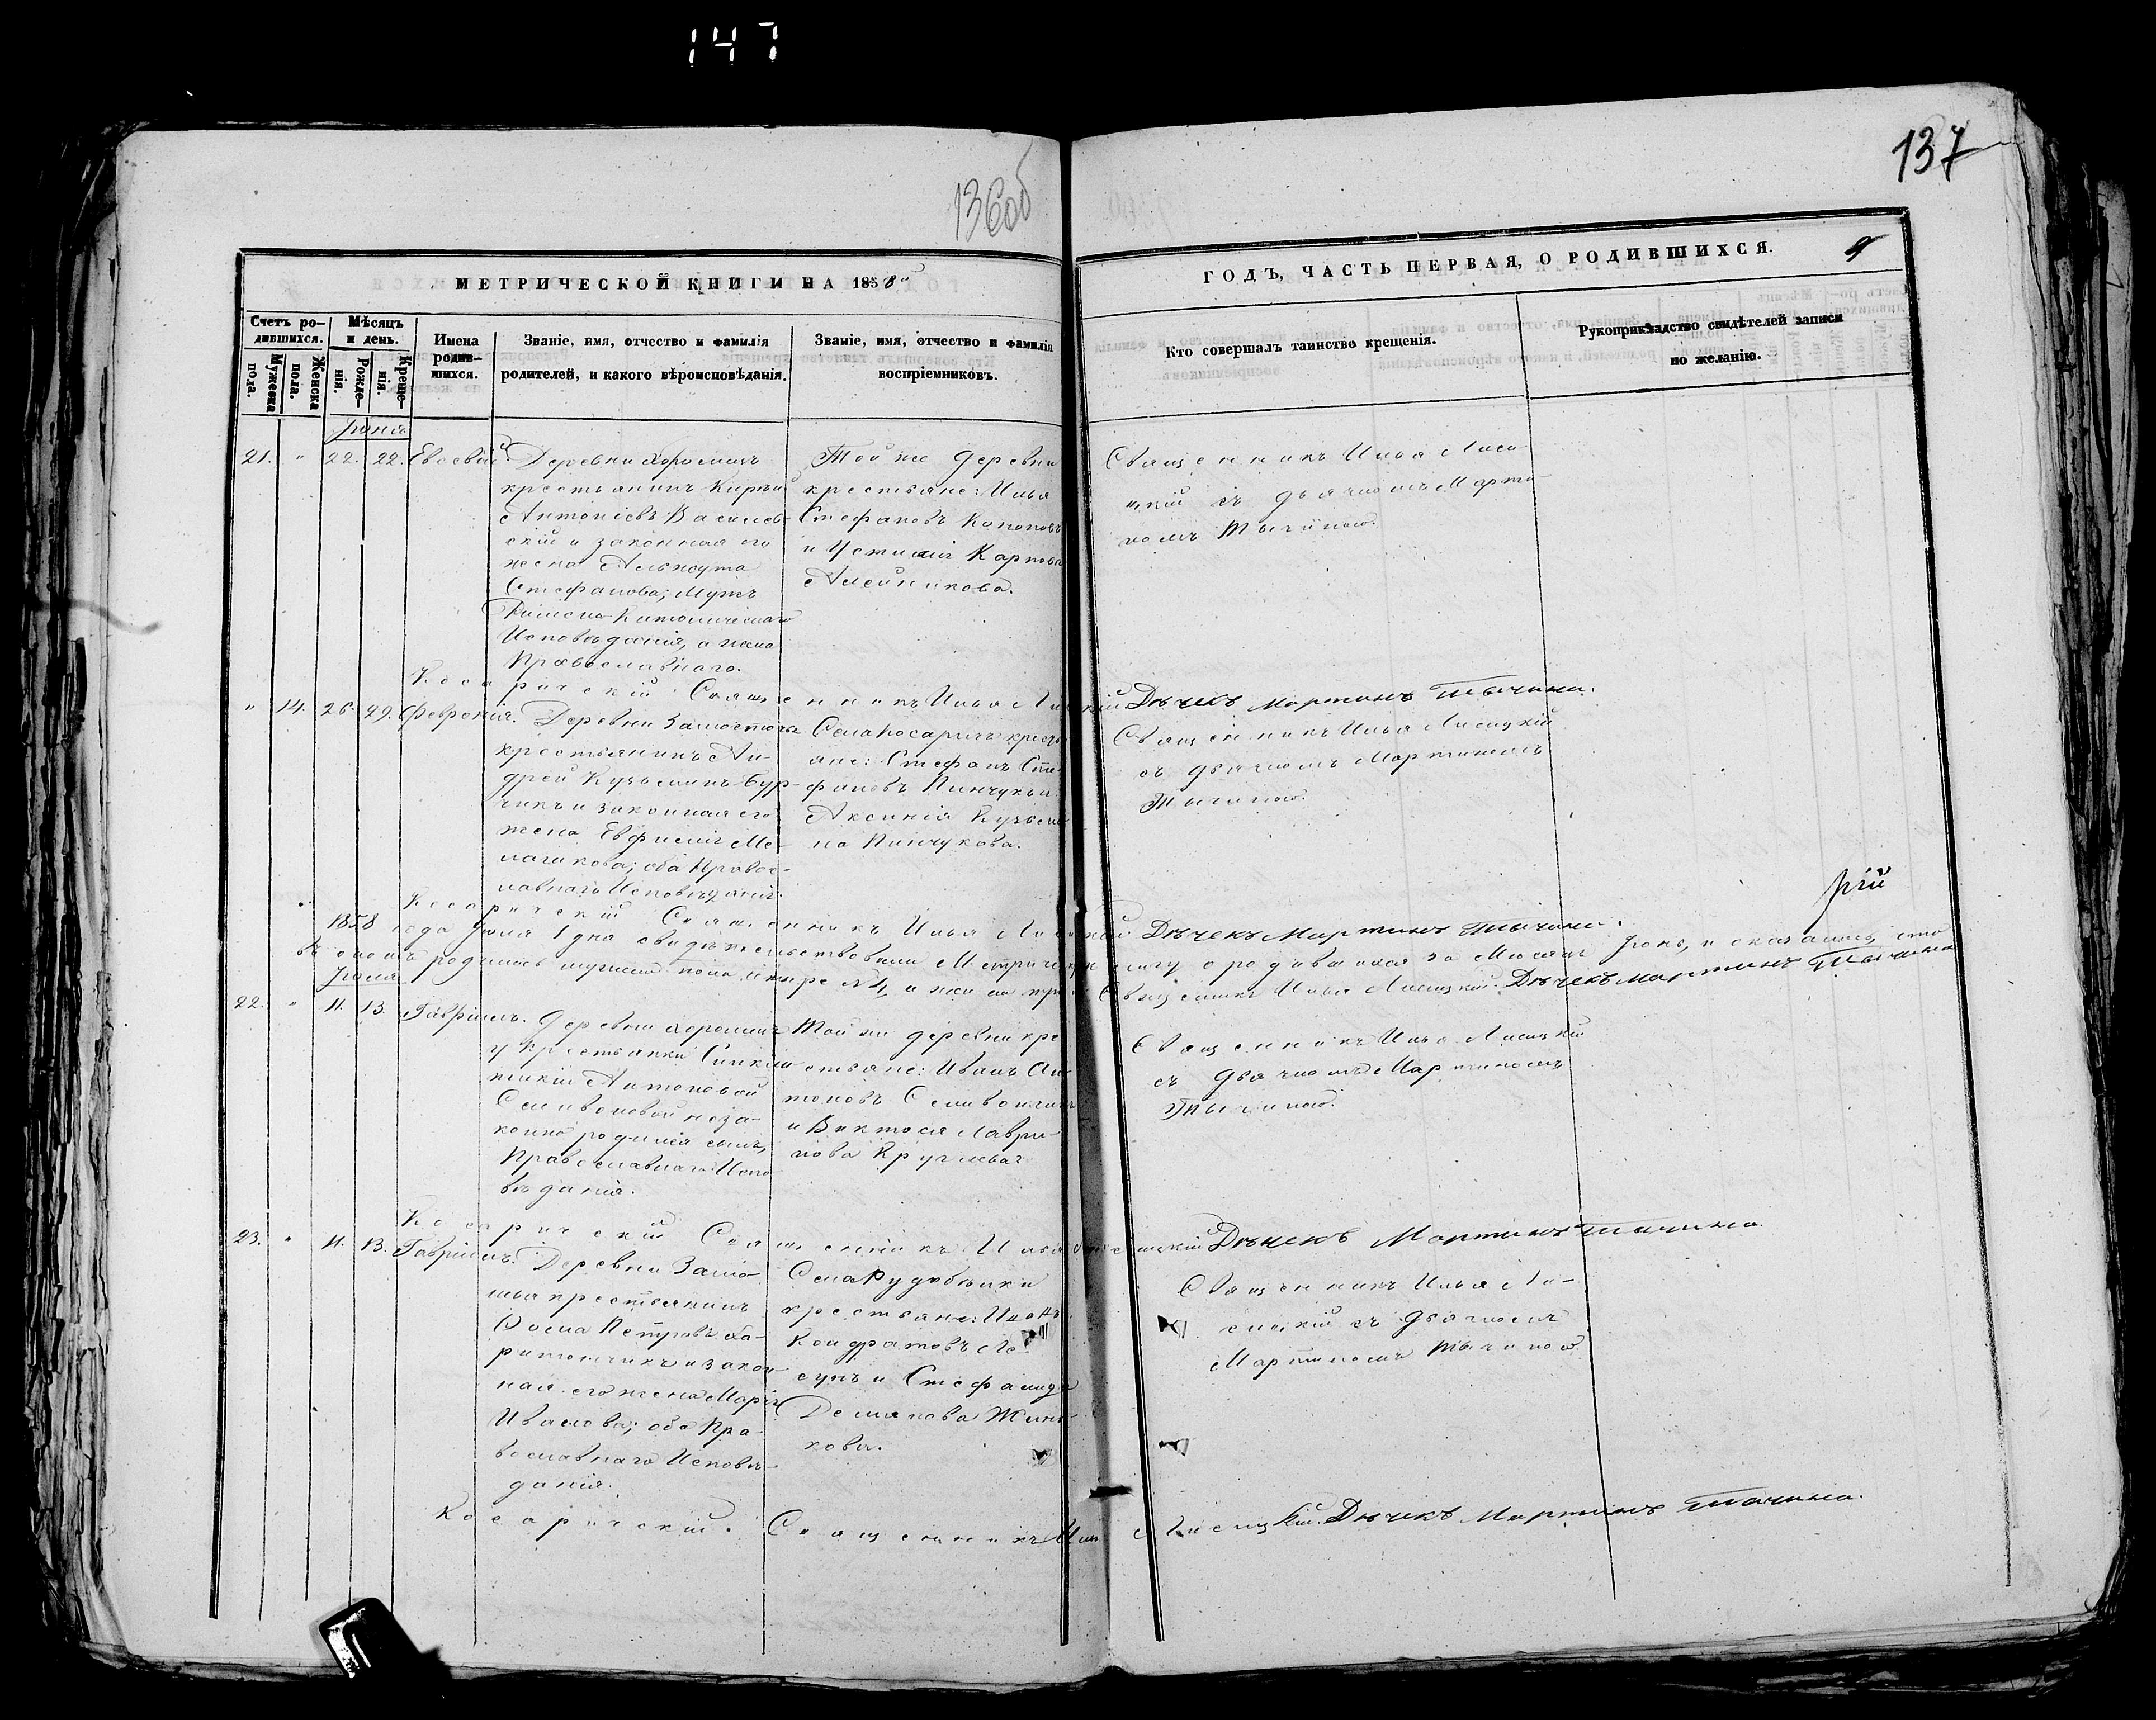 147
136об
137
МЕТРИЧЕСКОЙ КНИГИ НА 1858й
ГОДЪ, ЧАСТЬ ПЕРВАЯ, О РОДИВШИХСЯ.
9
Счетъ ро-
дившихся.
Мужеска
пола.
Женска
пола.
Мѣсяцъ
и день.
Рожде-
нія.
Креще-
нія.
Имена
родив-
шихся.
Званіе, имя, отчество и фамилія
родителей, и какого вѣроисповѣданія.
Званіе, имя, отчество и фамилія
воспріемниковъ.
Кто совершалъ таинство крещенія.
Рукоприкладство свидѣтелей записи
по желанію.
Іюня
21. " 22. 22. Евсевій.
Деревни Хоромецъ
крестьянинъ
Антоніевъ Василев-
скій и законная его
жена
Стефанова; мужъ
Римско-Католическаго
Исповѣданія, а жена
Православнаго.
Той же деревни
крестьяне: Илья
Стефановъ Кононовъ
и Устинія Карпова
Алейникова.
Священникъ Илья Лиси-
цкій съ дьячкомъ Марти-
номъ Тычиною.
Косаричскій Священникъ Илья Лисицкій Дьячекъ Мартинъ Тычина.
" 14. 26. 29. Февронія.
Деревни Замосточья
крестьянинъ Ан-
дрей Кузьминъ Бур-
чикъ и законная его
жена Евфимія Ме-
лачикова; оба Правос-
лавнаго Исповѣданія.
Села Косаричъ кресть-
яне: Стефанъ Сте-
фановъ Пинчукъ и
Аксинія Кузьми-
на Пинчукова.
Священникъ Илья Лисицкій
съ дьячкомъ Мартиномъ
Тычиною.
Косаричскій Священникъ Илья Лисицкій Дьячекъ Мартинъ Тычина.
1858 года Іюля 1 дня свидѣтельствовали Метрическую книгу о родившихся за Мѣсяцъ Іюнь, и оказалось, что
въ ономъ родилось мужеска пола Священникъ Илья Лисицкій. Дьячекъ Мартинъ Тычина
Іюля
22. " 11. 13. Гавріилъ.
Деревни Хоромецъ
у крестьянки
Антоновой
неза-
конно родился сынъ,
Православнаго Испо-
вѣданія.
Той же деревни кре-
стьяне: Иванъ Ан-
тоновъ
и Виктося Лаври-
нова
Священникъ Илья Лисицкій
съ дьячкомъ Мартиномъ
Тычиною.
Косаричскій Священникъ Илья Лисицкій Дьячекъ Мартинъ Тычина
23. " 11. 13. Гавріилъ.
Деревни Замо-
шья крестьянинъ
Фома Петровъ Ха-
ритончикъ и закон-
ная его жена Марія
Иванова; оба Пра-
вославнаго Исповѣ-
данія.
Села Рудобѣлки
крестьяне:
Кондратовъ Ле-
сунъ и Стефанида
Демянова Жин-
кова.
Священникъ Илья Ли-
сицкій съ дьячкомъ
Мартиномъ Тычиною.
Косаричскій Священникъ Илья Лисицкій. Дьячекъ Мартинъ Тычина.